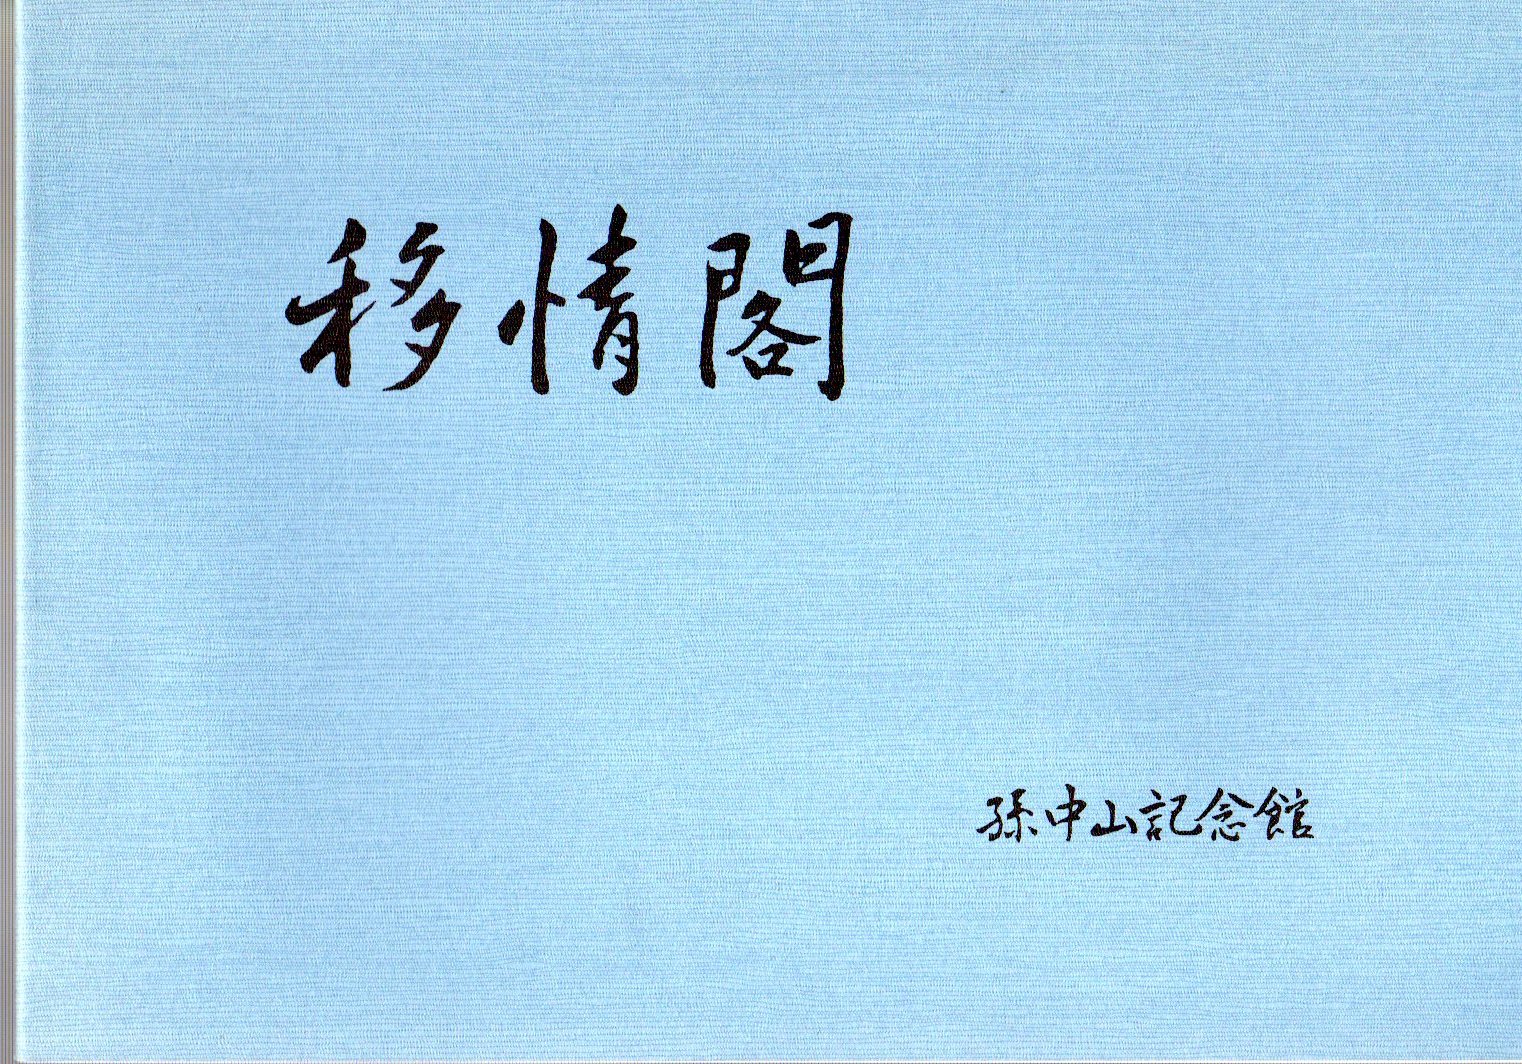 移情閣
孫中山記念館